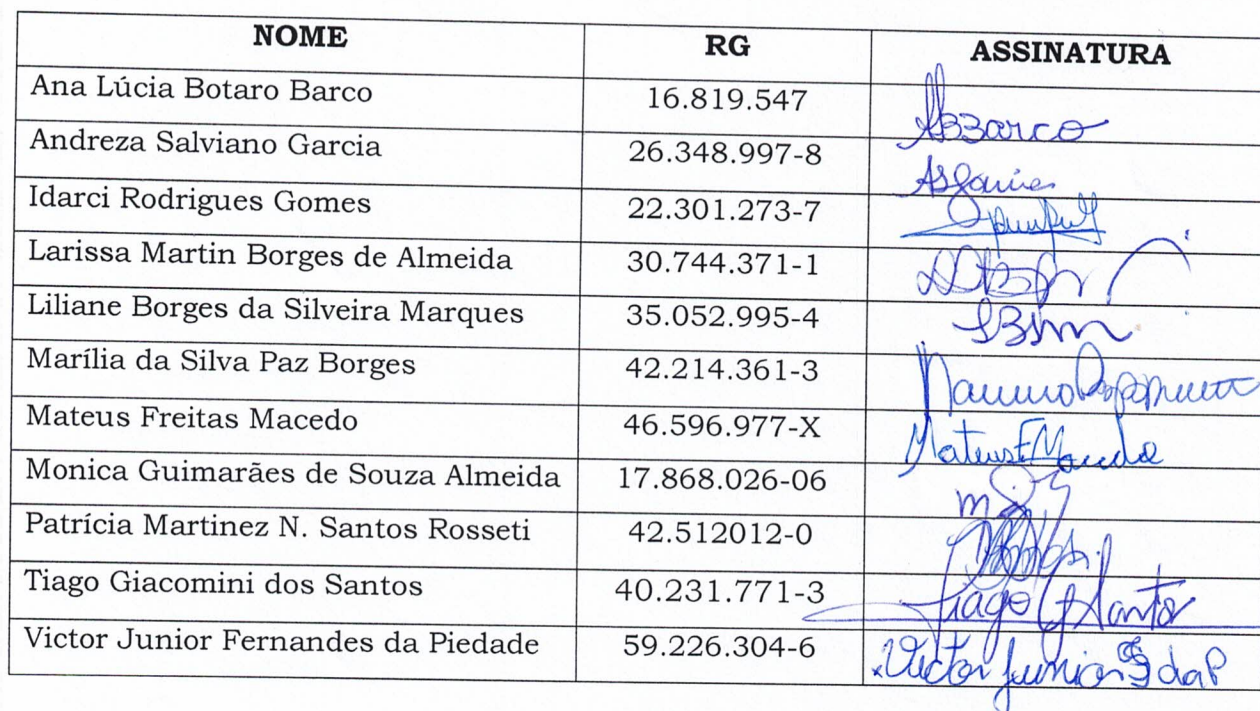 NOME RG ASSINATURA
Ana Lúcia Botaro Barco 16.819.547 ABBarco
Andreza Salviano Garcia 26.348.997-8 ASGarcia
Idarci Rodrigues Gomes 22.301.273-7
Larissa Martin Borges de Almeida 30.744.371-1
Liliane Borges da Silveira Marques 35.052.995-4 LBSM
Marília da Silva Paz Borges 42.214.361-3
Mateus Freitas Macedo 46.596.977-X Mateus F Macedo
Monica Guimarães de Souza Almeida 17.868.026-06
Patrícia Martinez N. Santos Rosseti 42.512012-0
Tiago Giacomini dos Santos 40.231.771-3 Tiago G Santos
Victor Junior Fernandes da Piedade 59.226.304-6 Victor Junior F daP